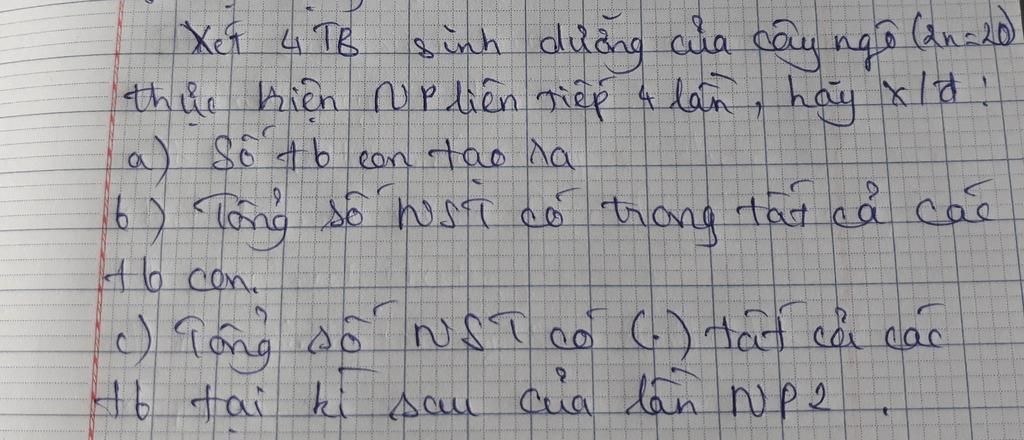 Xét 4 TB sinh dưỡng của cây ngô (2n=20)
thực hiện NP liên tiếp 4 lần, hãy x/đ:
a) Số tb con tạo ra
b) Tổng số NST có trong tất cả các
tb con.
c) Tổng số NST có (.) tất cả các
tb tại kì sau của lần NP2.